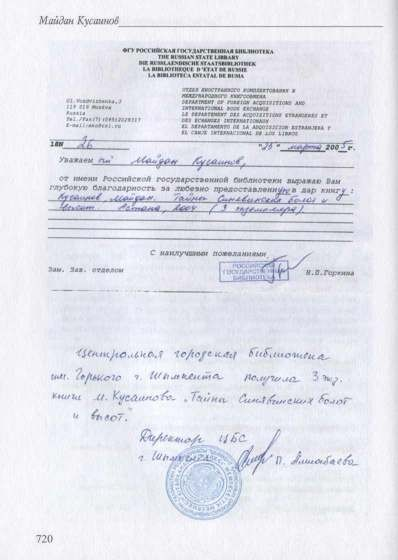 Майдан Кусаинов
ФГУ РОССИЙСКАЯ ГОСУДАРСТВЕННАЯ БИБЛИОТЕКА
THE RUSSIAN STATE LIBRARY
DIE RUSSLAENDISCHE STAATSBIBLIOTHEK
LA BIBLIOTHEQUE D'ETAT DE RUSSIE
LA BIBLIOTECA ESTATAL DE RUSIA
Ul.Vozdvizhenka,3
119 019 Moskva
Russia
E-mail:
ОТДЕЛ ИНОСТРАННОГО КОМПЛЕКТОВАНИЯ И
МЕЖДУНАРОДНОГО КНИГООБМЕНА
DEPARTMENT OF FOREIGN ACQUISITIONS AND
INTERNATIONAL BOOK EXCHANGE
LE DEPARTEMENT DES ACQUISITIONS ETRANGERES ET
DES ECHANGES INTERNATIONAUX
EL DEPARTAMENTO DE LA ADQUISICION EXTRANJERA Y
EL CANJE INTERNACIONAL DE LOS LIBROS
18N 26
марта 200 г.
Уважаемый Майдан Кусаинов,
от имени Российской государственной библиотеки выражаю Вам
глубокую благодарность за любезно предоставленную в дар книгу:
Кусаинов, Майдан. Тайны Синявинских болот и
высот. Астана, 2004 (3 экземпляра)
С наилучшими пожеланиями,
Зам. Зав. отделом
РОССИЙСКАЯ
ГОСУДАРСТВЕННАЯ
БИБЛИОТЕКА
Н.П.Горкина
Центральная городская библиотека
им. Горького г. Шымкента получила 3 экз.
книги М. Кусаинова „Тайна Синявинских болот
и высот."
Директор ЦБС
г. Шымкента
720